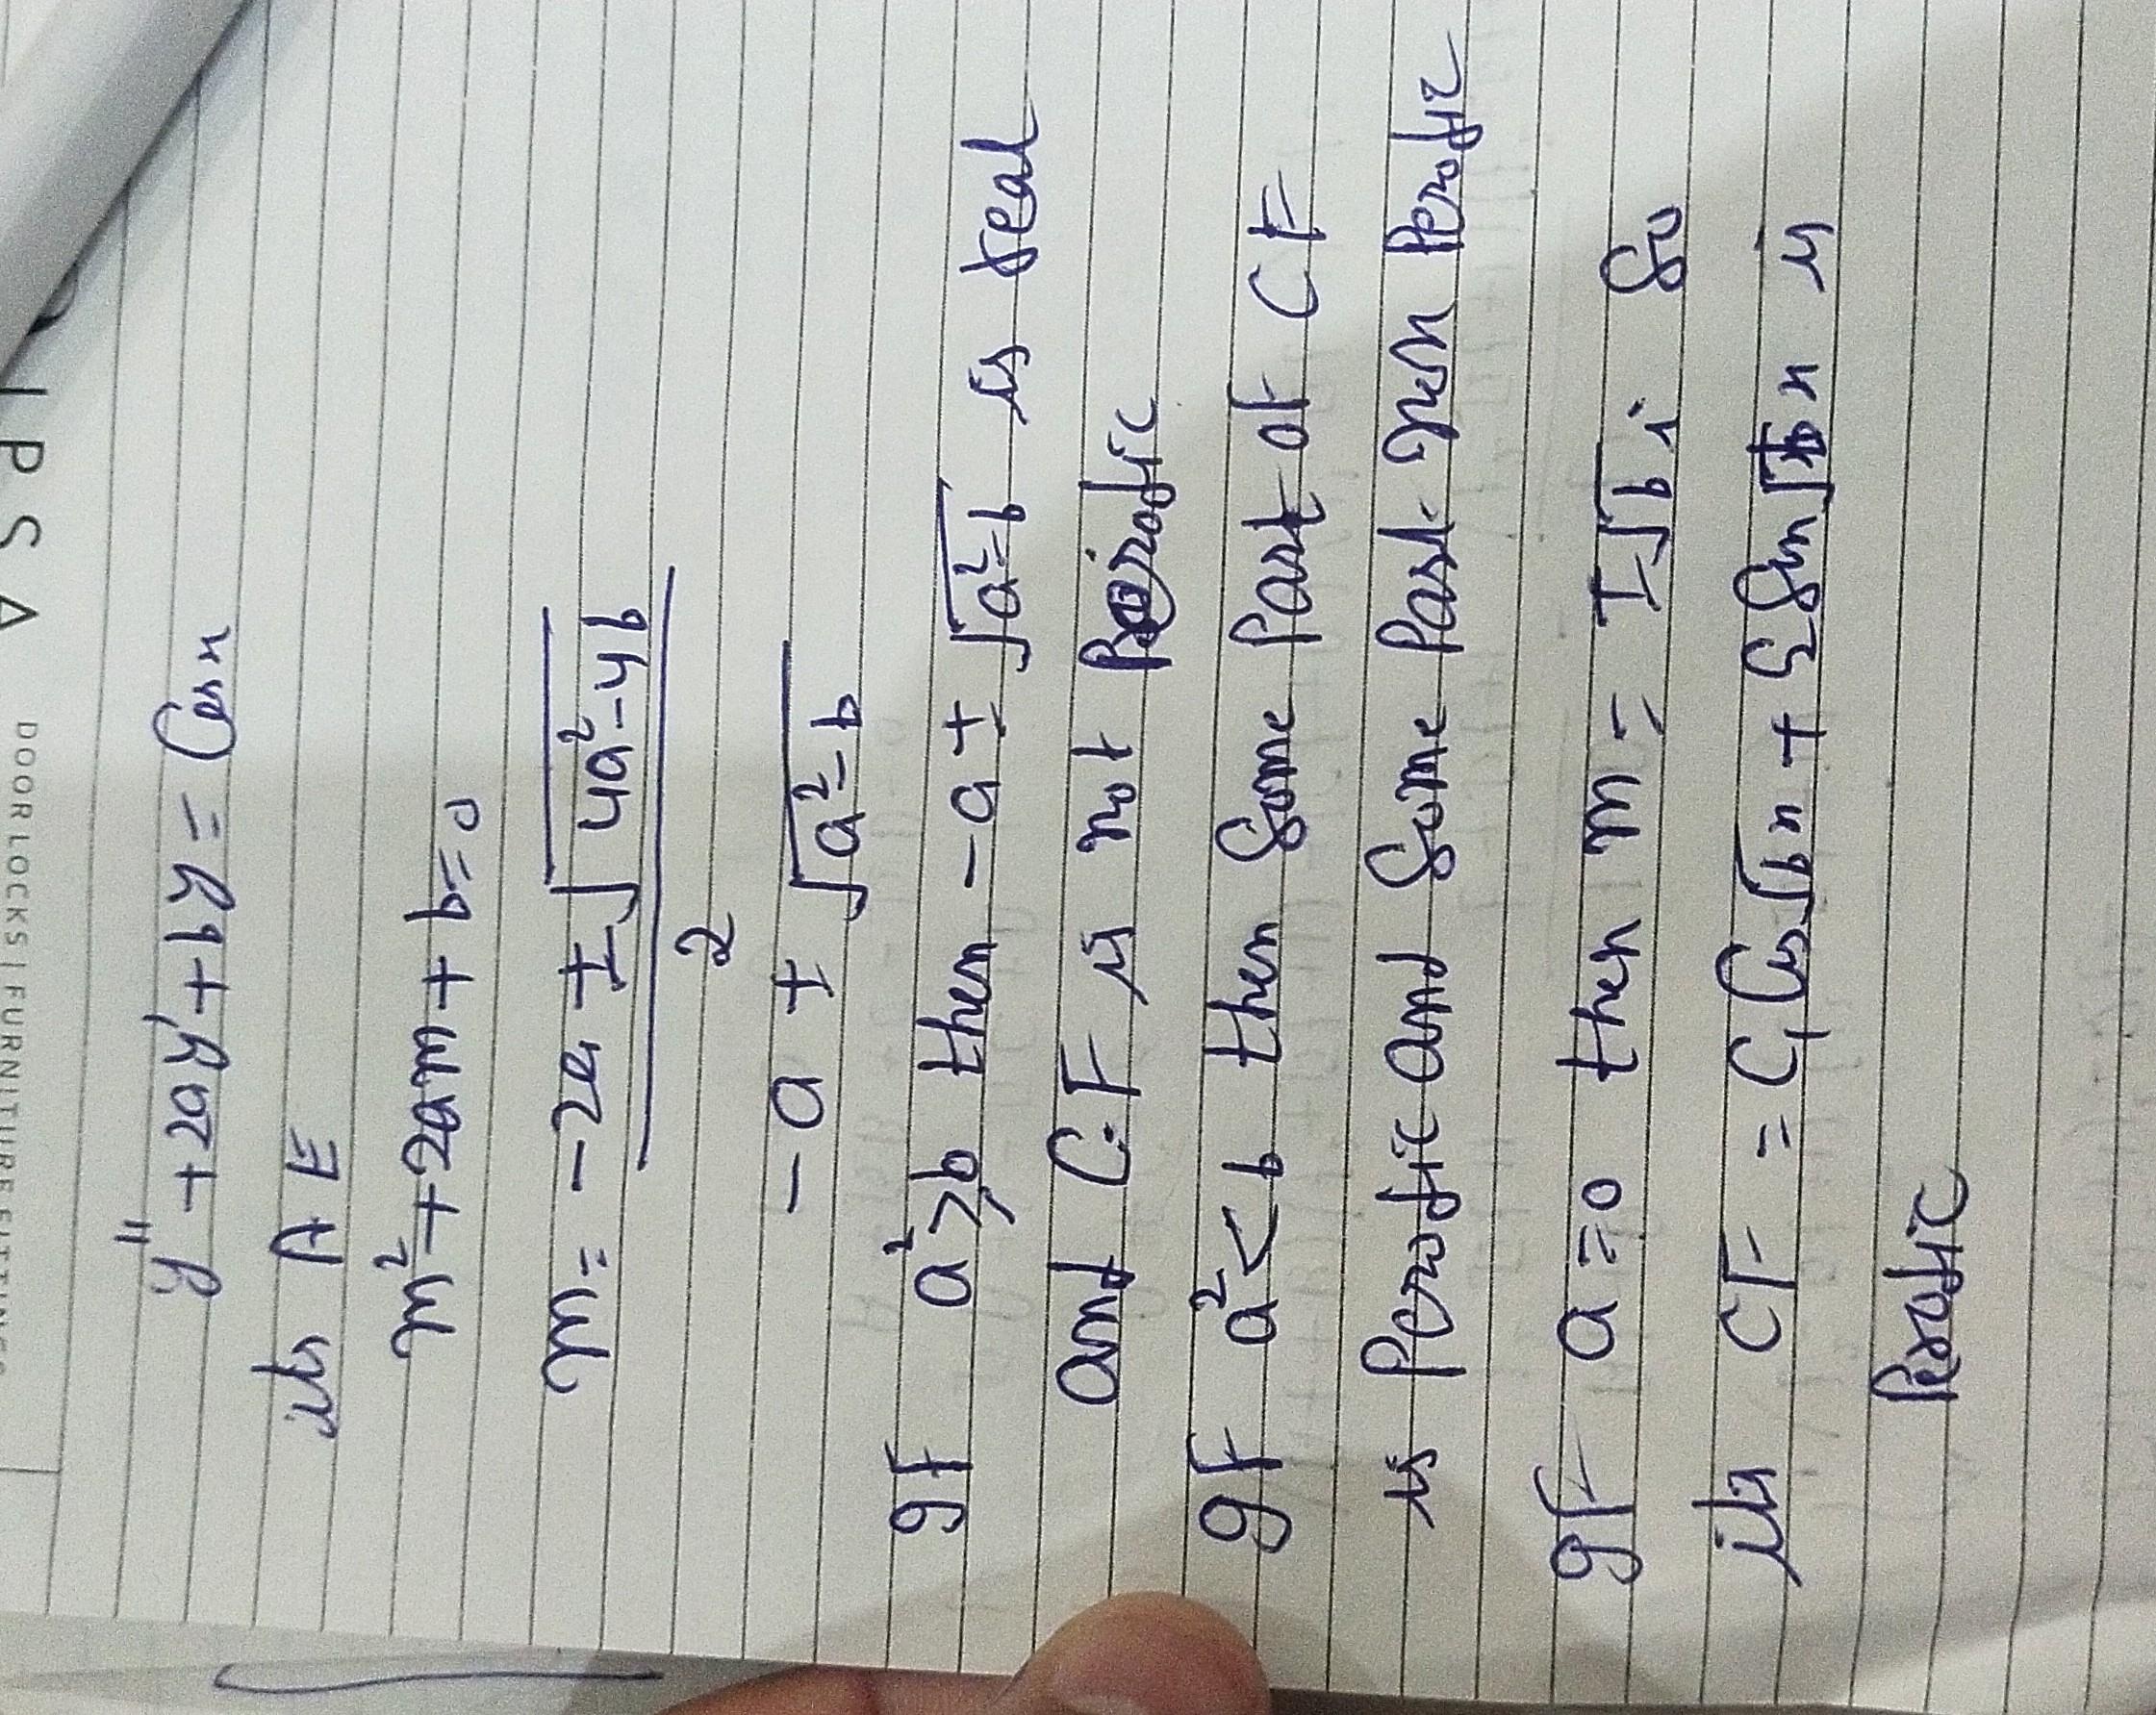 IPSA
DOOR LOCKS | FURNITURE FITTINGS
y'' + 2ay' + by = Cosx
its A E
m² + 2am + b = 0
m = -2a ± √4a²-4b
2
-a ± √a²-b
If a² ≥ b then -a ± √a²-b is real
and C.F is not Periodic
If a² < b then Some Part of CF
is Perodic and Some Part Non Perodic
If a = 0 then m = ±√b i So
its CF = C₁ Cos√b x + C₂ Sin√b x is
Perodic